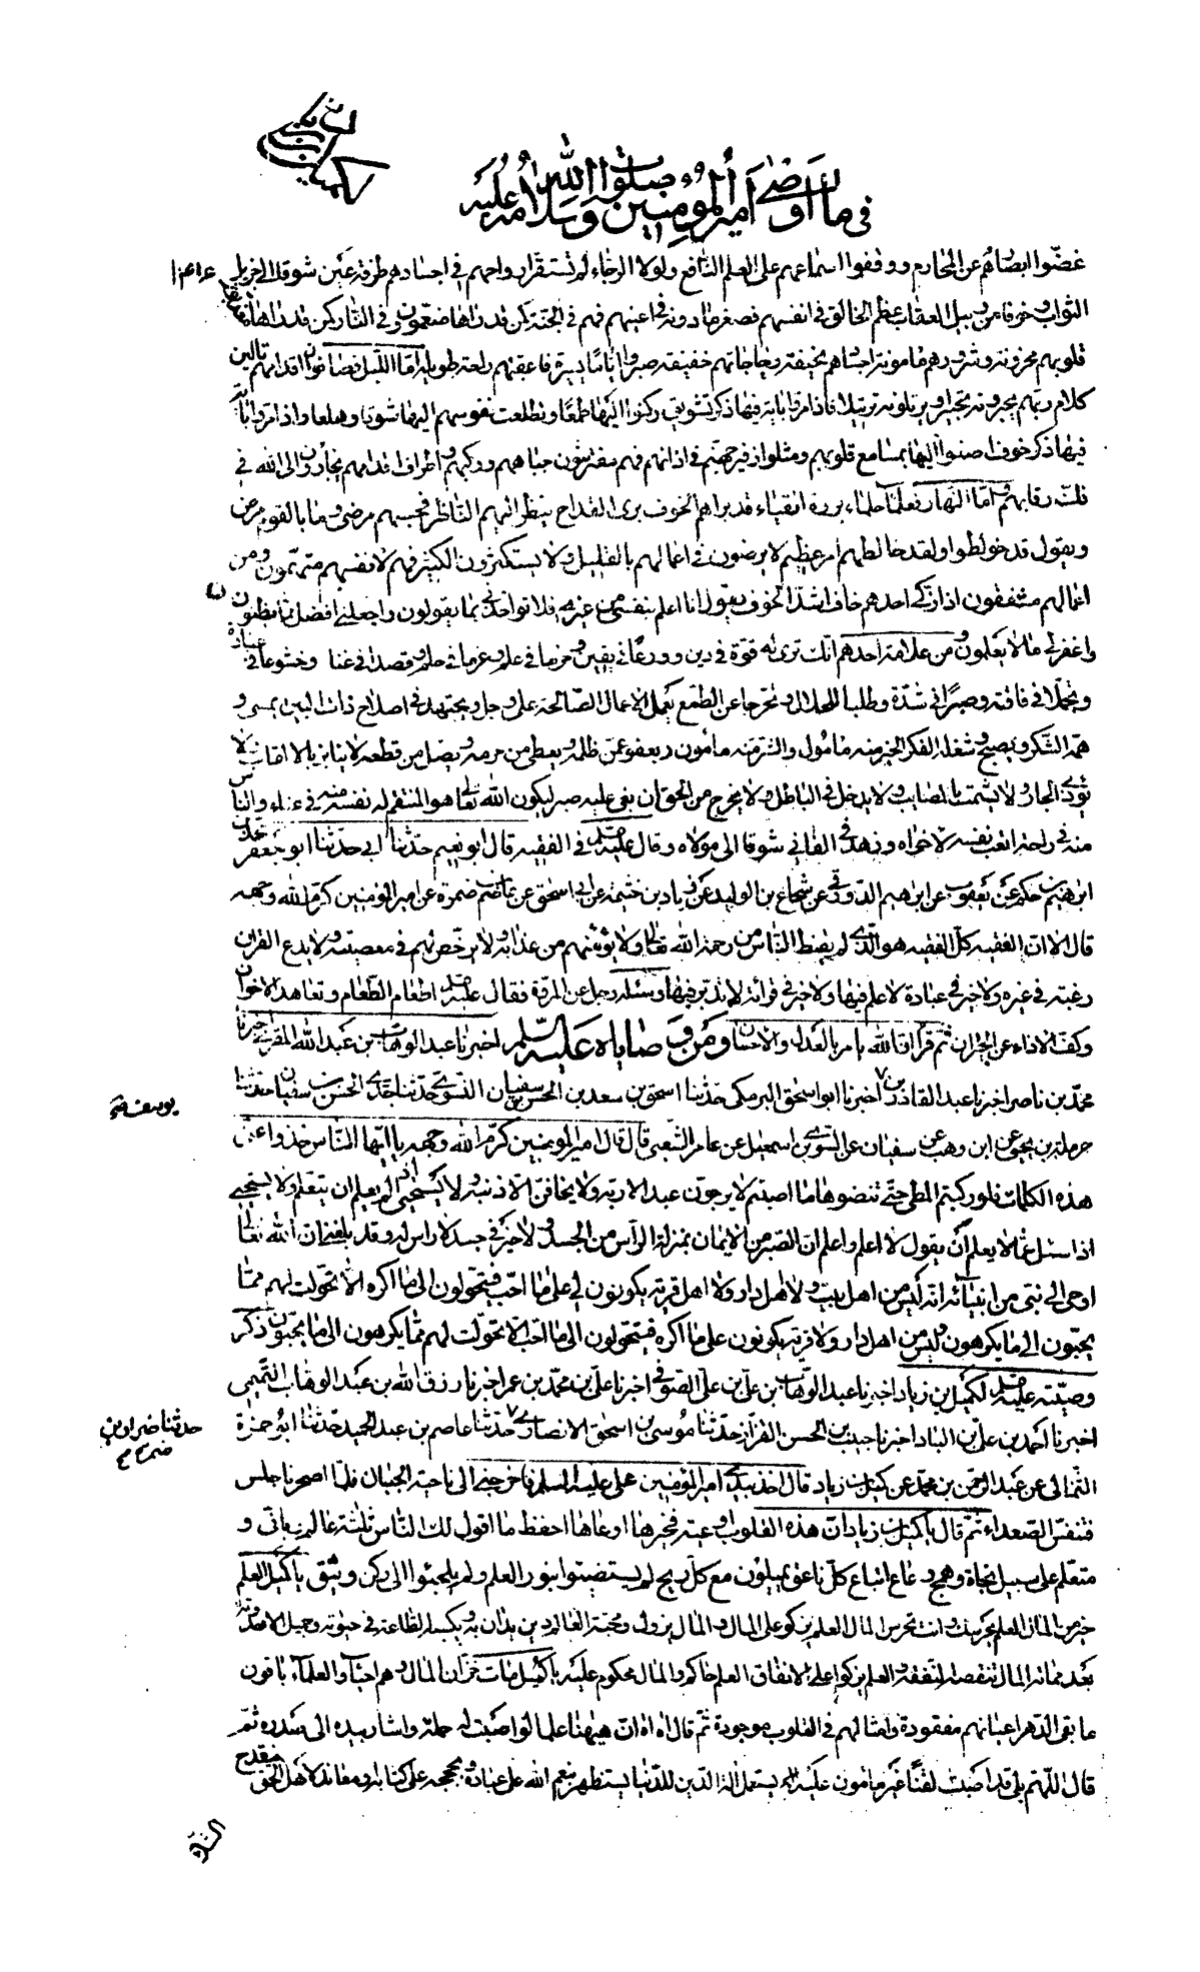 في ما اوصى امير المؤمنين صلوات الله وسلامه عليه
غضّوا ابصارهم عن المحارم ووقفوا اسماعهم على العلم النافع ولولا الرجاء لم تستقر ارواحهم في اجسادهم طرفة عين شوقا الى جزيل
الثواب وخوفا من وبيل العقاب عظم الخالق في انفسهم فصغر ما دونه في اعينهم فهم في الجنة كمن قد رآها منعّمون وفي النار كمن قد رآها
قلوبهم محزونة وشرورهم مامونة اجسادهم نحيفة وحاجاتهم خفيفة صبروا اياما يسيرة فاعقبتهم راحة طويلة اما الليل فصافوا اقدامهم تالين
كلام ربهم يحبرونه تحبيرا ويرتلونه ترتيلا فاذا مروا باية فيها ذكر تشويق ركنوا اليها طمعا وتطلعت نفوسهم اليها شوقا وهلعا واذا مروا باية
فيها ذكر خوف اصغوا اليها بمسامع قلوبهم ومثلوا زفير جهنم في اذانهم فهم مفترشون جباههم وركبهم واطراف اقدامهم يجارون الى الله في
فك رقابهم واما النهار فعلماء حلماء بررة اتقياء قد براهم الخوف بري القداح ينظر اليهم الناظر فيحسبهم مرضى وما بالقوم من مرض
ويقول قد خولطوا ولقد خالطهم امر عظيم لا يرضون في اعمالهم بالقليل ولا يستكثرون الكثير فهم لانفسهم متهمون ومن
اعمالهم مشفقون اذا زكى احدهم خاف اشد الخوف يقول انا اعلم بنفسي من غيري فلا تواخذني بما يقولون واجعلني افضل مما يظنون
واغفر لي ما لا يعلمون ومن علامة احدهم انك ترى له قوة في دين وورعا في يقين وحزما في علم وعزما في حلم وقصدا في غنا وخشوعا في عبادة
وتجملا في فاقة وصبرا في شدة وطلبا للحلال وتحرجا عن الطمع يعمل الاعمال الصالحة على وجل ويجتهد في اصلاح ذات البين يمسي و
همه الشكر ويصبح وشغله الفكر الخير منه مامول والشر منه مامون يعفو عمن ظلمه ويعطي من حرمه ويصل من قطعه لا ينابز بالالقاب لا
يؤذي الجار ولا يشمت بالمصاب ولا يدخل في الباطل ولا يخرج من الحق ان بغي عليه صبر ليكون الله تعالى هو المنتقم له نفسه منه في عناء والناس
منه في راحة اتعب نفسه لاخراه وزهد في الفاني شوقا الى مولاه وقال عليه السلام في الفقيه قال ابو نعيم حدثنا ابي حدثنا ابو جعفر محمد بن
ابرهيم بن حكم عن يعقوب عن ابرهيم الدورقي عن شجاع بن الوليد عن زياد بن خثيمة عن ابي اسحق عن عاصم بن ضمرة عن امير المؤمنين كرم الله وجهه
قال الا ان الفقيه كل الفقيه هو الذي لم يقنط الناس من رحمة الله تعالى ولا يؤمنهم من عذابه ولا يرخص لهم في معصيته ولا يدع القران
رغبة في غيره ولا خير في عبادة لا علم فيها ولا خير في قراءة لا تدبر فيها وسئله رجل عن المروة فقال عليه السلام اطعام الطعام وتعاهد الاخوان
وكف الاذاء عن الجيران ثم قرأ ان الله يامر بالعدل والاحسان ومن وصاياه عليه السلام اخبرنا عبد الوهاب بن عبد الله المقري اخبرنا
محمد بن ناصر اخبرنا عبد القادر بن اخبرنا ابو اسحق البرمكي حدثنا اسحق بن سعد بن الحسن بن سفيان النسوي حدثنا جدي الحسن بن سفيان حدثنا
يوسف صح
حرملة بن يحيى عن ابن وهب عن سفيان عن السري بن اسمعيل عن عامر الشعبي قال قال امير المومنين كرم الله وجهه يا ايها الناس خذوا عني
هذه الكلمات فلو ركبتم المطي حتى تنضوها ما اصبتم لا يرجون عبد الا ربه ولا يخافن الا ذنبه ولا يستحيي اذا لم يعلم ان يتعلم ولا يستحيي
اذا سئل عما لا يعلم ان يقول لا اعلم واعلم ان الصبر من الايمان بمنزلة الراس من الجسد ولا خير في جسد لا راس له وقد بلغني ان الله تعالى
اوحى الى نبي من انبيائه انه ليس من اهل بيت ولا اهل دار ولا اهل قرية يكونون لي على ما احب فيتحولون الى ما اكره الا تحولت لهم مما
يحبون الى ما يكرهون وليس من اهل دار ولا قرية يكونون على ما اكره فيتحولون الى ما احب الا تحولت لهم مما يكرهون الى ما يحبون ذكر
وصيته عليه السلام لكميل بن زياد اخبرنا عبد الوهاب بن علي بن علي الصوفي اخبرنا علي بن محمد بن عمر اخبرنا رزق الله بن عبد الوهاب التميمي
اخبرنا احمد بن علي بن الباد اخبرنا حبيب بن الحسن القزاز حدثنا موسى بن اسحق الانصاري حدثنا عاصم بن عبد الحميد حدثنا ابو حمزة
حدثنا ضرار بن
الثمالي عن عبد الرحمن بن محمد عن كميل بن زياد قال اخذ بيدي امير المؤمنين علي عليه السلام فاخرجني الى ناحية الجبان فلما اصحرنا جلس
فتنفس الصعداء ثم قال يا كميل بن زياد ان هذه القلوب اوعية فخيرها اوعاها احفظ ما اقول لك الناس ثلثة عالم رباني و
متعلم على سبيل نجاة وهمج رعاع اتباع كل ناعق يميلون مع كل ريح لم يستضيئوا بنور العلم ولم يلجئوا الى ركن وثيق يا كميل العلم
خير من المال العلم يحرسك وانت تحرس المال العلم يزكو على المال والمال يزول ومحبة العالم دين يدان به يكسبه الطاعة في حيوته وجميل الاحدوثة
بعد مماته المال تنقصه النفقة والعلم يزكوا على الانفاق العلم حاكم والمال محكوم عليه يا كميل مات خزان المال وهم احياء والعلماء باقون
ما بقي الدهر اعيانهم مفقودة وامثالهم في القلوب موجودة ثم قال اه اه ان هيهنا علما لو اصبت له حملة واشار بيده الى صدره ثم
قال اللهم بلى قد اصبت لقنا غير مامون عليه يستعمل الة الدين للدنيا يستظهر بنعم الله على عباده وبحججه على كتابه ومعاند لاهل الحق ينقدح